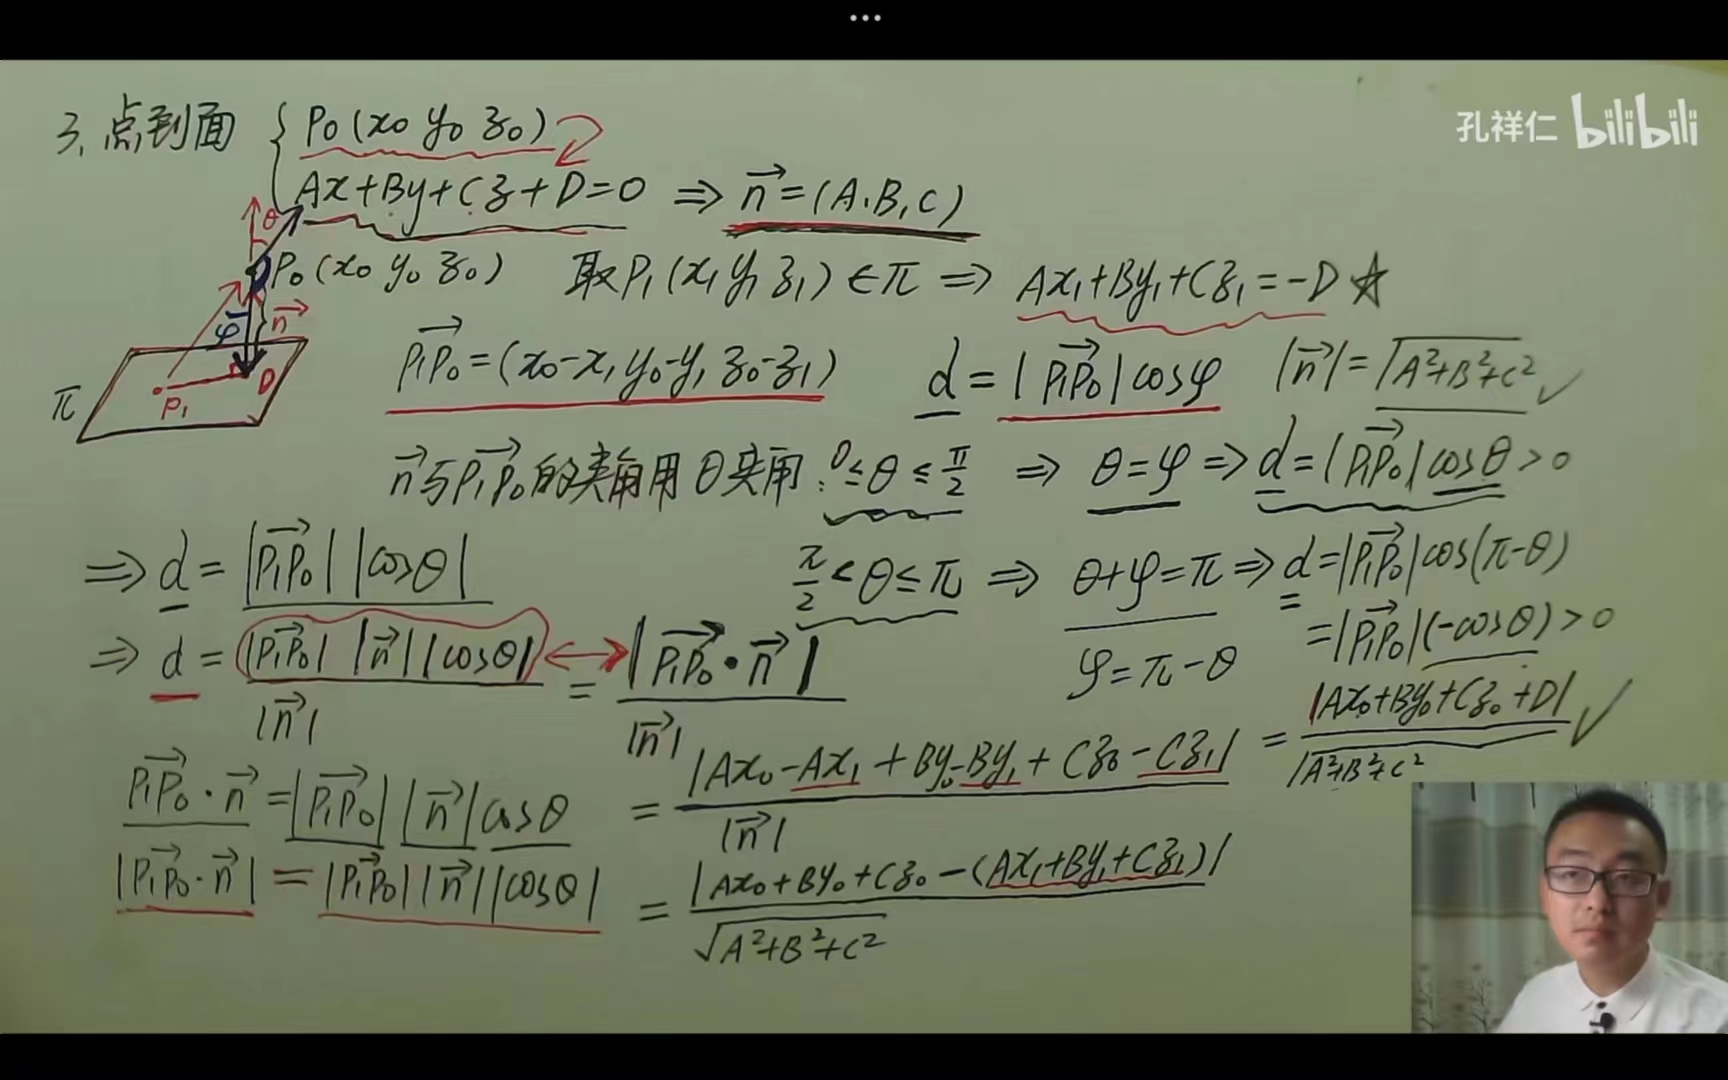 ...
孔祥仁 bilibili
3、点到面 { P₀(x₀ y₀ z₀)
Ax+By+Cz+D=0 ⇒ n⃗=(A,B,C)
θ
P₀(x₀ y₀ z₀) 取P₁(x₁ y₁ z₁)∈π ⇒ Ax₁+By₁+Cz₁=-D ☆
φ n⃗
π P₁ D
P₁P₀⃗=(x₀-x₁ y₀-y₁ z₀-z₁) d=|P₁P₀⃗|cosφ |n⃗|=√A²+B²+C² ✓
n⃗与P₁P₀⃗的夹角用θ表用: 0≤θ≤π/2 ⇒ θ=φ ⇒ d=|P₁P₀⃗|cosθ>0
⇒ d=|P₁P₀⃗||cosθ| π/2<θ≤π ⇒ θ+φ=π ⇒ d=|P₁P₀⃗|cos(π-θ)
φ=π-θ =|P₁P₀⃗|(-cosθ)>0
⇒ d=|P₁P₀⃗||n⃗||cosθ|/|n⃗| ↔ =|P₁P₀⃗·n⃗|/|n⃗|
P₁P₀⃗·n⃗=|P₁P₀⃗||n⃗|cosθ =|Ax₀-Ax₁+By₀-By₁+Cz₀-Cz₁|/|n⃗| =|Ax₀+By₀+Cz₀+D|/√A²+B²+C² ✓
|P₁P₀⃗·n⃗|=|P₁P₀⃗||n⃗||cosθ| =|Ax₀+By₀+Cz₀-(Ax₁+By₁+Cz₁)|/√A²+B²+C²